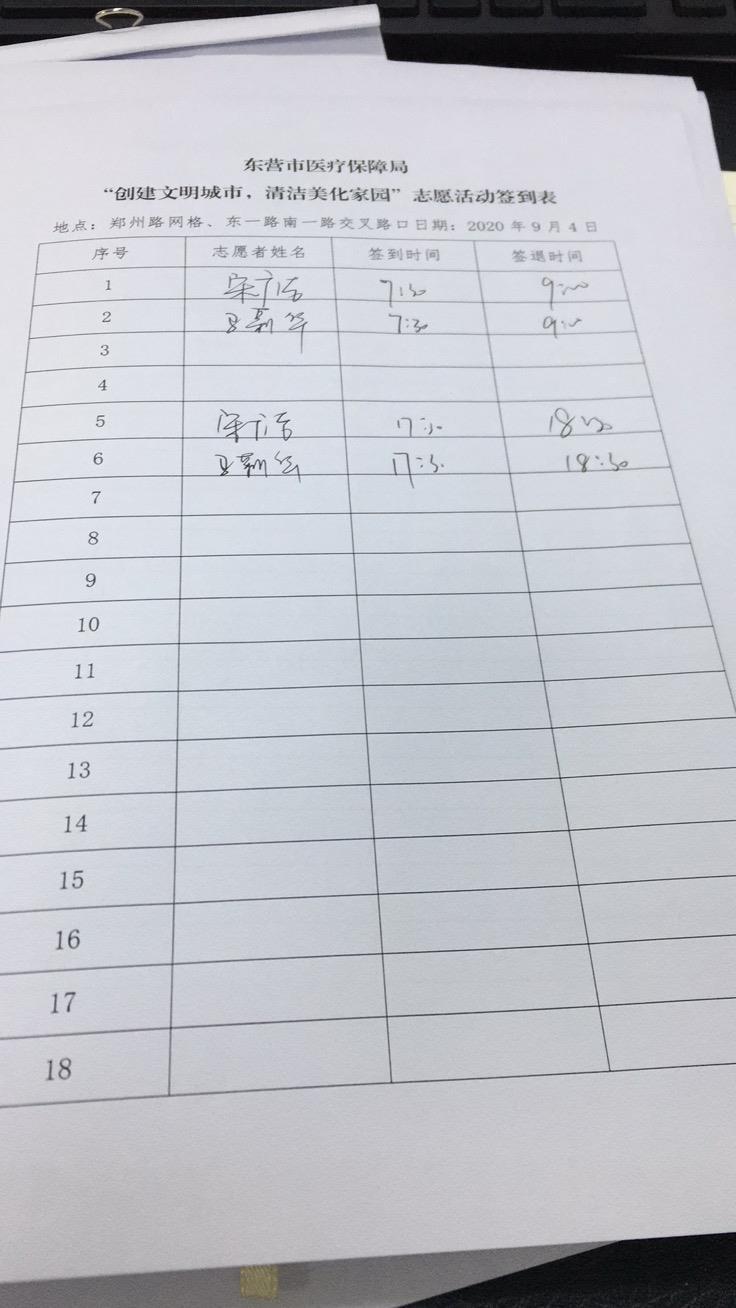 东营市医疗保障局
“创建文明城市，清洁美化家园”志愿活动签到表
地点：郑州路网格、东一路南一路交叉路口日期：2020年9月4日
序号 志愿者姓名 签到时间 签退时间
1 7:30 9:00
2 7:30 9:00
3
4
5 17:30 18:30
6 17:30 18:30
7
8
9
10
11
12
13
14
15
16
17
18